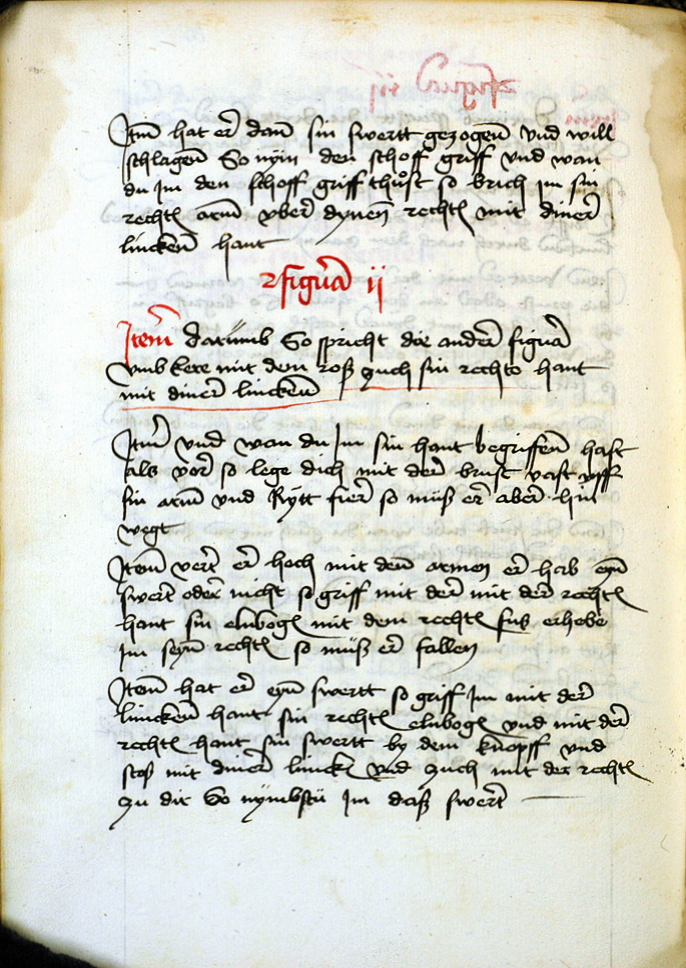 Itm̄ hat er dan̄ sin swertt gezogen̄ vnd will
schlagen̄ So nÿm den schoff griff vnd wan
du Im den schoff griff thůst so brich Im sin
recht arm̄ vber dynen̄ recht mit diner
lincken̄ hant
2 figura ii
Item̄ darūmb So spricht die ander figura
vmb kere mit dem roß zuch sin rechte hant
mit diner lincken̄
Itm̄ vnd wan du Im sin hant begriffen̄ hast
als vor so lege dich mit der brust vast vff
sin arm̄ vnd Rÿtt fier so müß er aber hin
wegt
Item̄ vert er hoch mit den̄ armen er hab eyn̄
swert oder nicht so griff mit der mit der recht
hant sin elnbog mit dem recht fuß erhebe
Im seyn̄ recht so müß er fallen
Item̄ hat er eyn̄ swertt so griff Im mit der
lincken̄ hant sin recht elnbog vnd mit der
recht hant sin swertt by dem knopff vnd
stoß mit diner linck vnd zuch mit der recht
zu dir So nÿmbstu Im daß swert